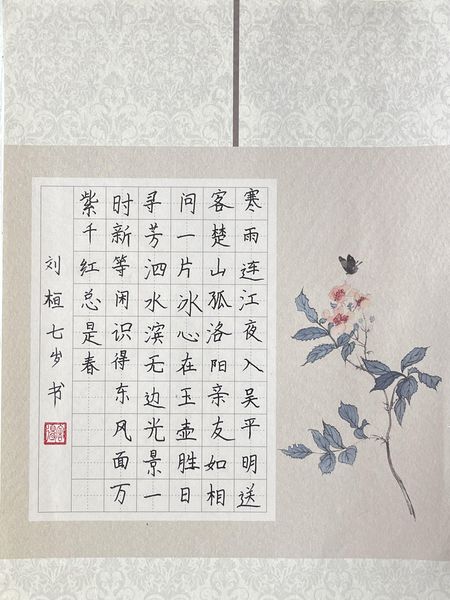 寒雨连江夜入吴平明送
客楚山孤洛阳亲友如相
问一片冰心在玉壶胜日
寻芳泗水滨无边光景一
时新等闲识得东风面万
紫千红总是春
刘桓七岁书